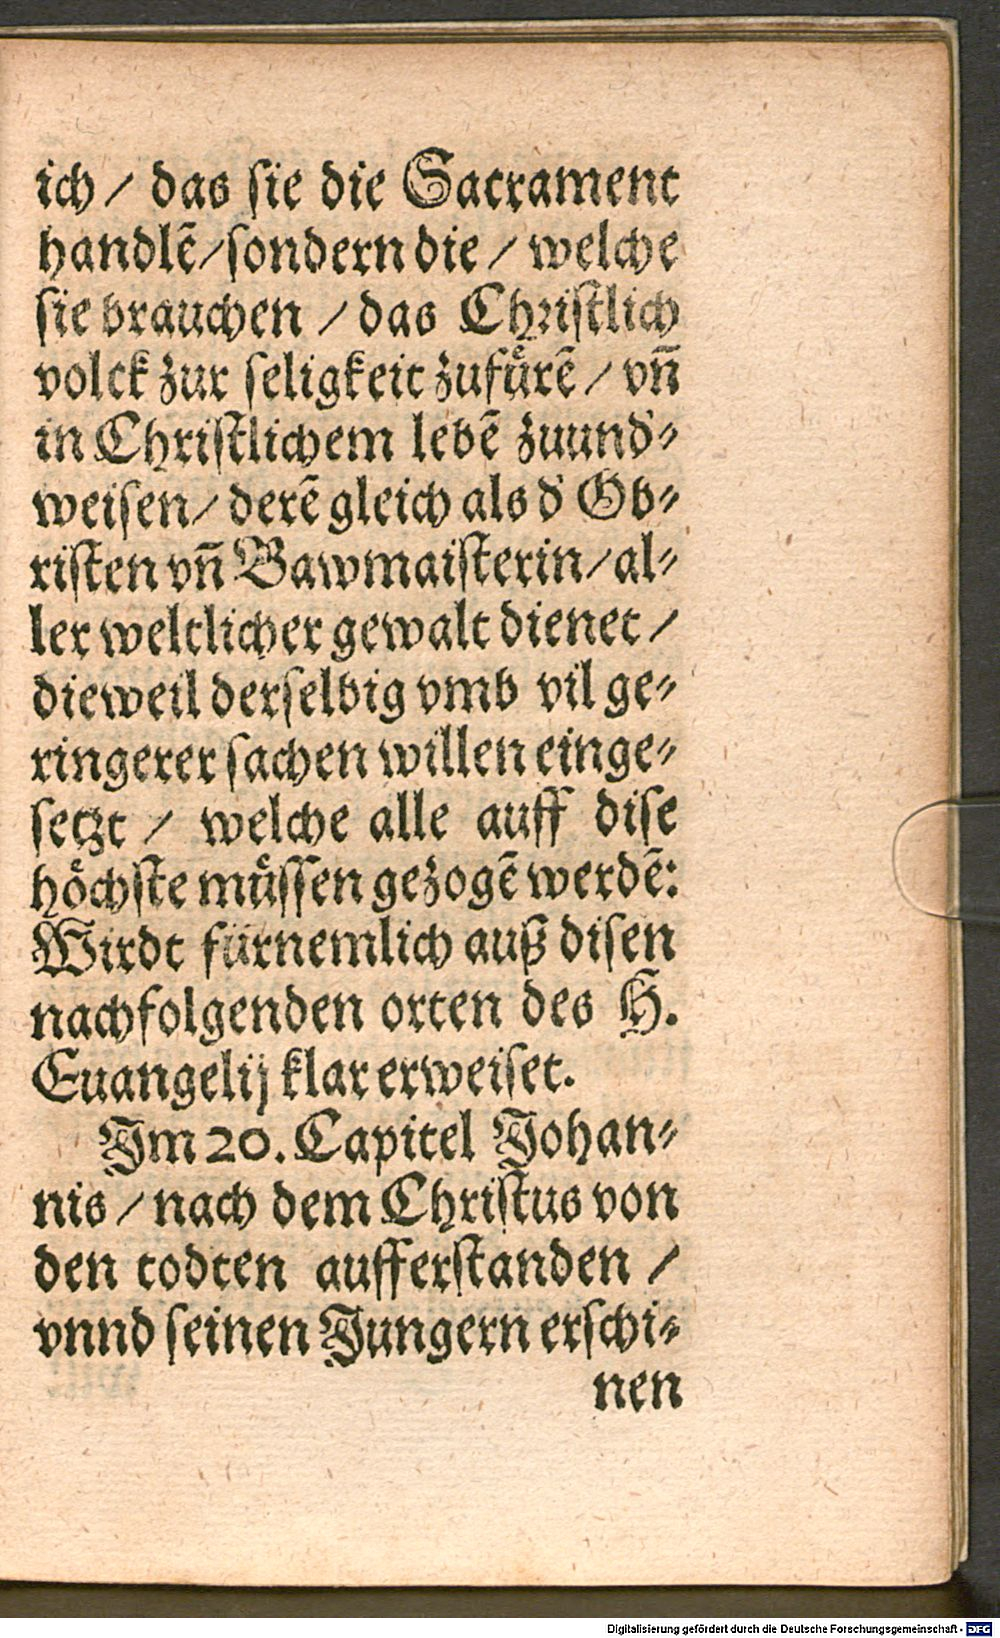 ich / das sie die Sacrament
handlẽ/sondern die / welche
sie brauchen / das Christlich
volck zur seligkeit zufuͤrẽ / vñ
in Christlichem lebẽ zuund⸗
weisen/ derẽ gleich als d' Ob⸗
risten vñ Bawmaisterin/ al⸗
ler weltlicher gewalt dienet /
dieweil derselbig vmb vil ge⸗
ringerer sachen willen einge⸗
setzt / welche alle auff dise
hoͤchste muͤssen gezogẽ werdẽ:
Wirdt fürnemlich auß disen
nachfolgenden orten des H.
Euangelij klar erweiset.
Im 20. Capitel Johan⸗
nis / nach dem Christus von
den todten aufferstanden /
vnnd seinen Jungern erschi⸗
nen
Digitalisierung gefördert durch die Deutsche Forschungsgemeinschaft - DFG